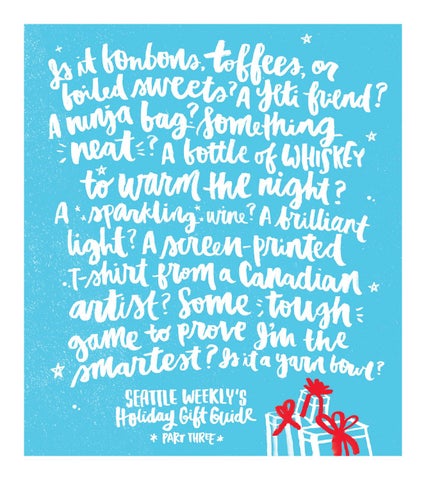 Is it bonbons, toffees, or
boiled sweets? A yeti friend?
A ninja bag? Something
neat? A bottle of WHISKEY
to warm the night?
A sparkling wine? A brilliant
light? A screen-printed
T-shirt from a Canadian
artist? Some tough
game to prove I'm the
smartest? Is it a yarn bowl?
SEATTLE WEEKLY'S
Holiday Gift Guide
* PART THREE *